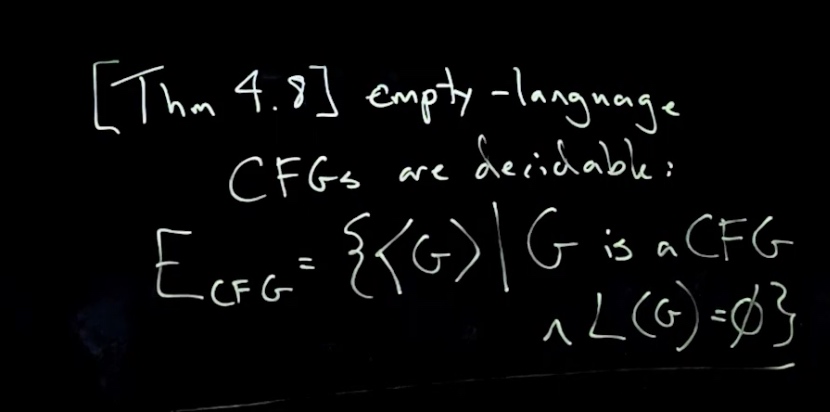 [Thm 4.8] empty-language
CFGs are decidable:
E_CFG = {⟨G⟩ | G is a CFG
∧ L(G) = ∅}